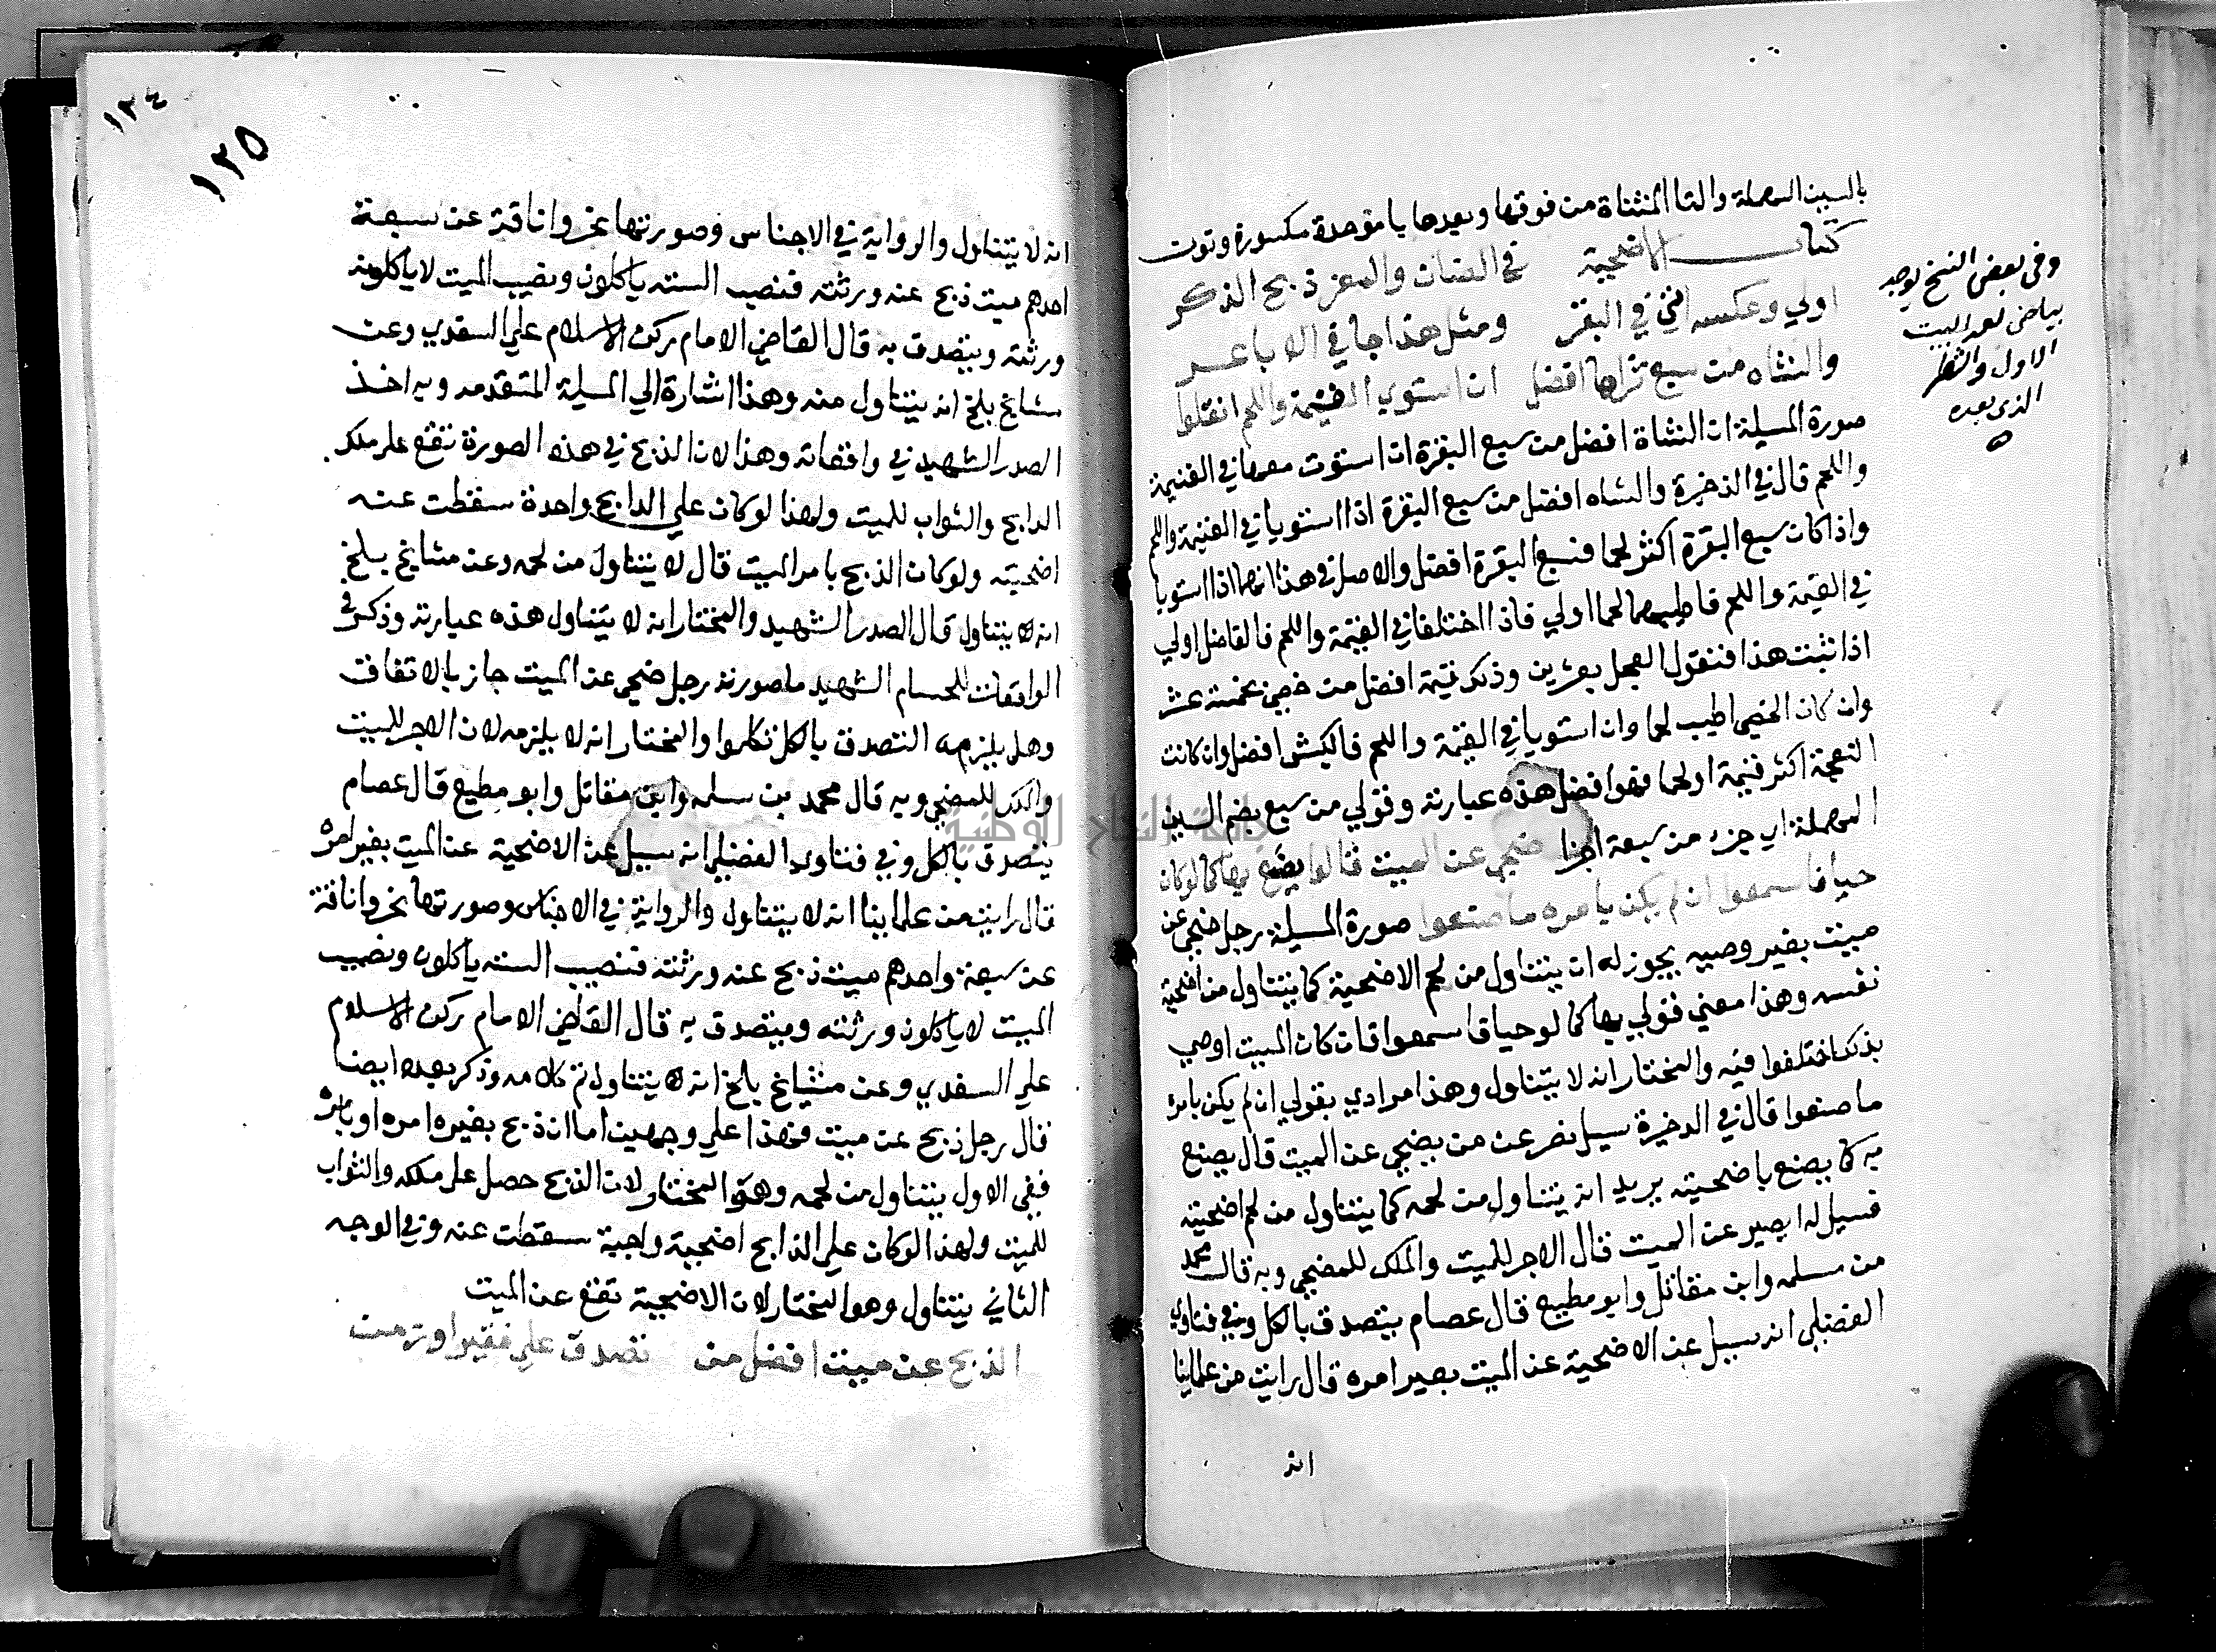 بالسين المهملة والتا المثناة من فوقها وبعدها يا موحدة مكسورة ونون
كتاب الاضحية في الضان والمعز ذبح الذكر
اولي وعكسه افتي في البقر ومثل هذا جا في الاباعر
والشاه من سبع تراها افضل ان استوي القيمة واللحم انقلوا
صورة المسيلة ان الشاة افضل من سبع البقرة ان استوت معها في القيمة
واللحم قال في الذخيرة والشاه افضل من سبع البقرة اذا استويا في القيمة واللحم
واذا كان سبع البقرة اكثر لحما فسبع البقرة افضل والاصل في هذا انهما اذا استويا
في القيمة واللحم فاطيبهما لحما اولي فاذا اختلفا في القيمة واللحم فالفاضل اولي
اذا ثبت هذا فنقول الفحل بعشرين وذلك قيمته افضل من خصي بخمسة عشر
وان كان الخصي اطيب لحما وان استويا في القيمة واللحم فالكبش افضل وان كانت
النعجة اكثر قيمة او لحما فهو افضل هذه عبارته وقولي من سبع بضم السين
المهملة اي جزء من سبعة اجزا ضحي عن الميت قالوا يصنع بها كما لو كان
حيا فاسمعوا ان لم يكن بامره ما صنعوا صورة المسيلة رجل ضحي عن
ميت بغير وصيه يجوز له ان يتناول من لحم الاضحية كما يتناول من اضحية
نفسه وهذا معني قولي بها كما لو حيا فاسمعوا فان كان الميت اوصي
بذلك اختلفوا فيه والمختار انه لا يتناول وهذا مرادي بقولي ان لم يكن بامره
ما صنعوا قال في الدخيرة سيل نصر عن من يضحي عن الميت قال يصنع
به كما يصنع باضحيته يريد انه يتناول من لحمه كما يتناول من لحم اضحيته
فسيل له ايصير عن الميت قال الاجر للميت والملك للمضحي وبه قال محمد
من سلمه وابن مقاتل وابو مطيع قال عصام يتصدق بالكل وفي فتاوي
الفضلي انه سيل عن الاضحية عن الميت بغير امره قال رايت من علماينا
انه
وفي بعض النسخ يوجد
بياض بعد البيت
الاول والشطر
الذي بعده
١٣٤
١٣٥
انه لا يتناول والرواية في الاجناس وصورتها نحروا ناقة عن سبعة
احدهم ميت ذبح عنه ورثته فنصيب الستة ياكلون ونصيب الميت لا ياكلونه
ورثته ويتصدق به قال القاضي الامام ركن الاسلام علي السغدي وعن
مشايخ بلخ انه يتناول منه وهذا اشارة الي المسيلة المتقدمه وبه اخذ
الصدر الشهيد في واقعاته وهذا لان الذبح في هذه الصورة تقع علي ملك
الدابح والثواب للميت ولهذا لو كان علي الدابح واحدة سقطت عنه
اضحيته ولو كان الذبح بامر الميت قال لا يتناول من لحمه وعن مشايخ بلخ
انه لا يتناول قال الصدر الشهيد والمختار انه لا يتناول هذه عبارته وذكر في
الواقعات للحسام الشهيد ما صورته رجل ضحي عن الميت جاز بالاتفاق
وهل يلزمه التصدق بالكل تكلموا والمختار انه لا يلزمه لان الاجر للميت
والملك للمضحي وبه قال محمد بن سلمه وابن مقاتل وابو مطيع قال عصام
يتصدق بالكل وفي فتاوي الفضلي انه سيل عن الاضحية عن الميت بغير امره
قال رايت من علماينا انه لا يتناول والرواية في الاجناس وصورتها نحروا ناقة
عن سبعة واحدهم ميت ذبح عنه ورثته فنصيب الستة ياكلون ونصيب
الميت لا ياكلون ورثته ويتصدق به قال القاضي الامام ركن الاسلام
علي السغدي وعن مشايخ بلخ انه لا يتناول تم كلامه وذكر بعده ايضا
قال رجل ذبح عن ميت فهذا علي وجهين اما ان ذبح بغيره امره او بامره
ففي الاول يتناول من لحمه وهو المختار لان الذبح حصل علي ملكه والثواب
للميت ولهذا لو كان علي الذابح اضحية واجبة سقطت عنه وفي الوجه
الثاني يتناول وهو المختار لان الاضحية تقع عن الميت
الذبح عن ميت افضل من تصدق علي فقير او زمن
جامعة النجاح الوطنية